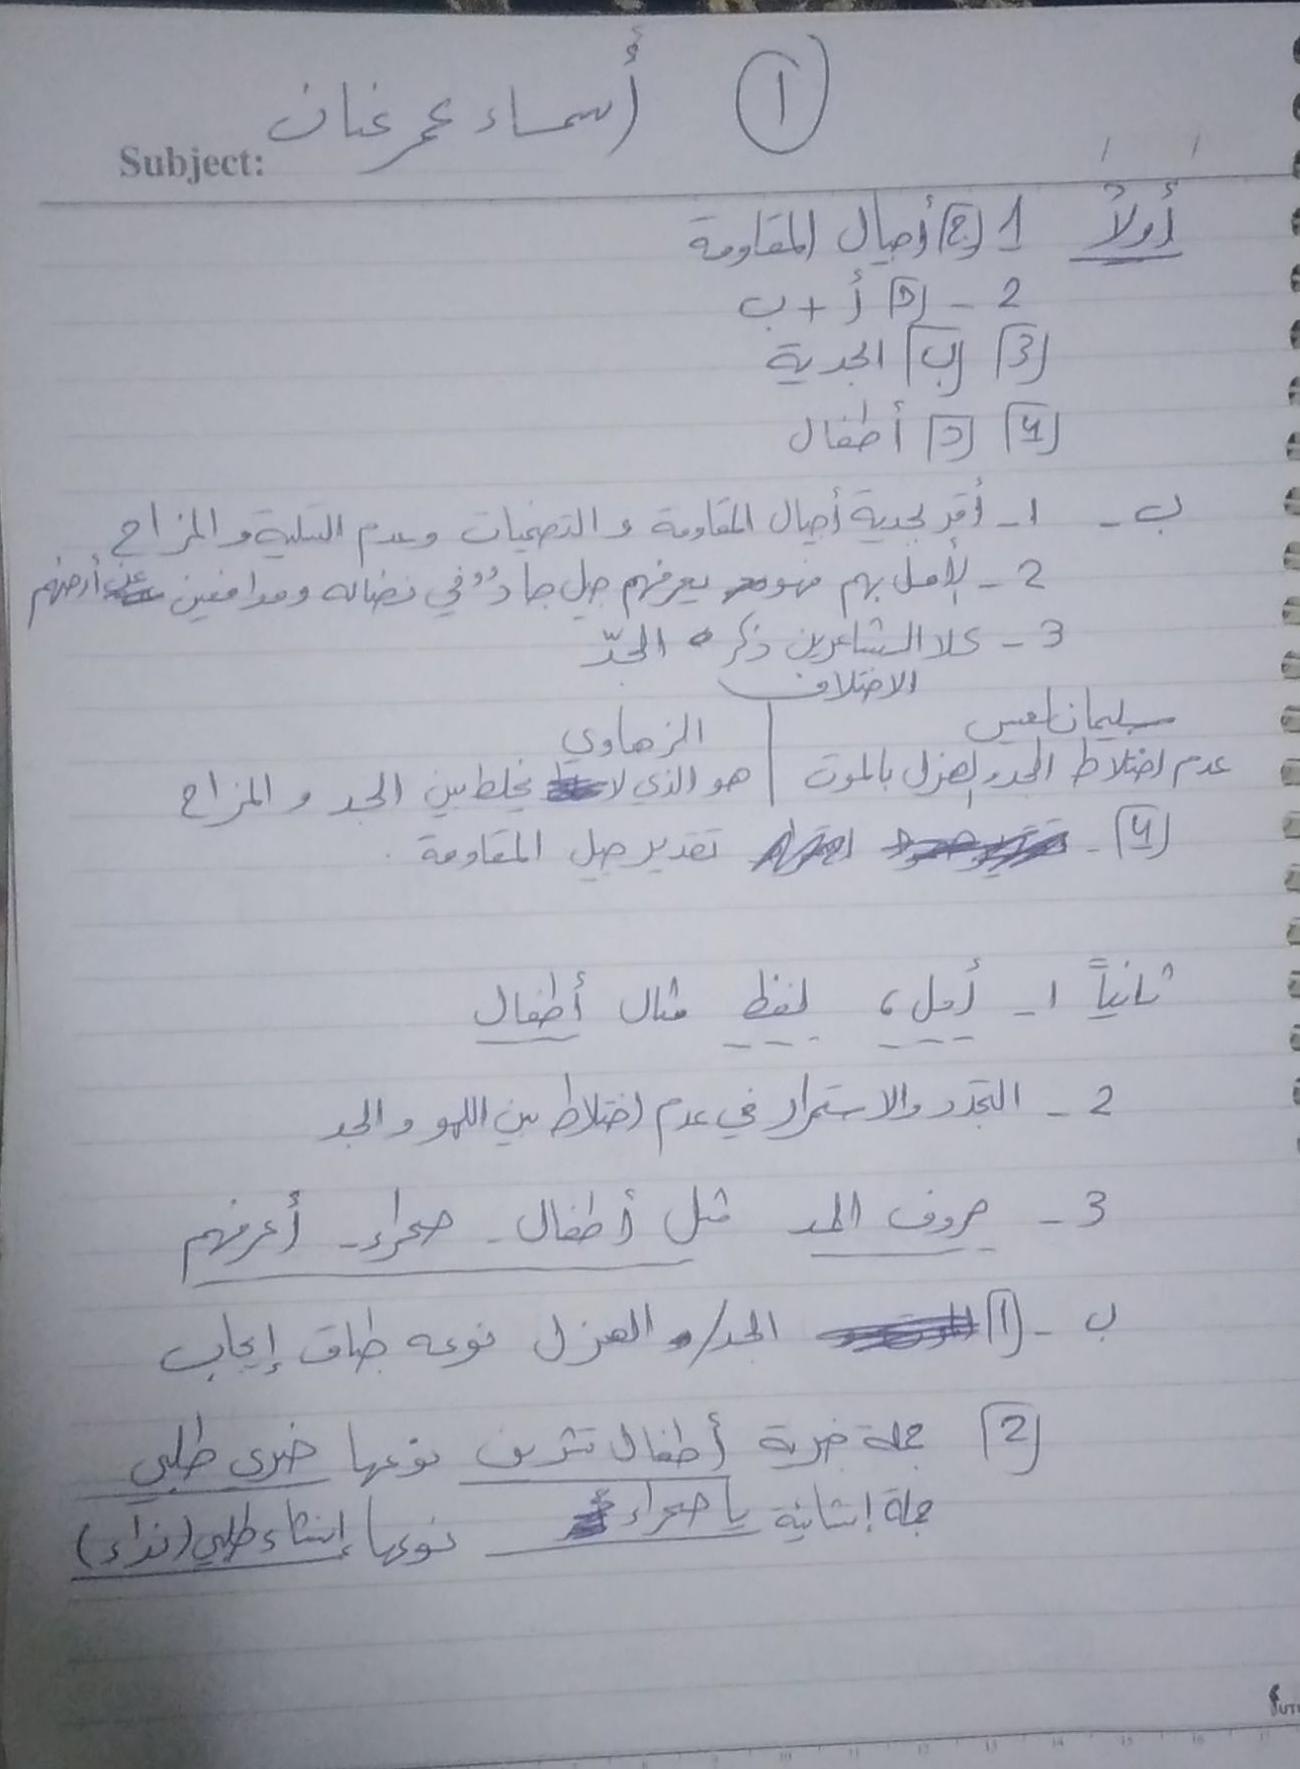 ① أسماء عمر غنان
Subject:
أولاً 1 (ج) أجيال المقاومة
2 - (د) أ + ب
(3) (ب) الجدية
(4) (د) أطفال
ب - 1 - أقر بجدية أجيال المقاومة والتضحيات وعدم التسلية والمزاح
2 - لأمل بهم فهو يعرفهم جيل جادٌ في نضاله ومدافعين عن أرضهم
3 - كلا الشاعرين ذكر الجدّ
الاختلاف
سليمان العيسى | الزهاوي
عدم اختلاط الجد والهزل بالموت | هو الذي لا يخلط بين الجد والمزاح
(4) - تقدير جيل المقاومة .
ثانياً 1 - أمل، لفظ مثال أطفال
2 - التجدد والاستمرار في عدم اختلاط بين اللهو والجد
3 - حروف المد مثل أطفال - صحراء - أعرفهم
ب - (1) الجد / الهزل نوعه طباق إيجاب
(2) جملة خبرية أطفال تشرين نوعها خبري طلبي
جملة إنشائية يا صحراء نوعها إنشاء طلبي (نداء)